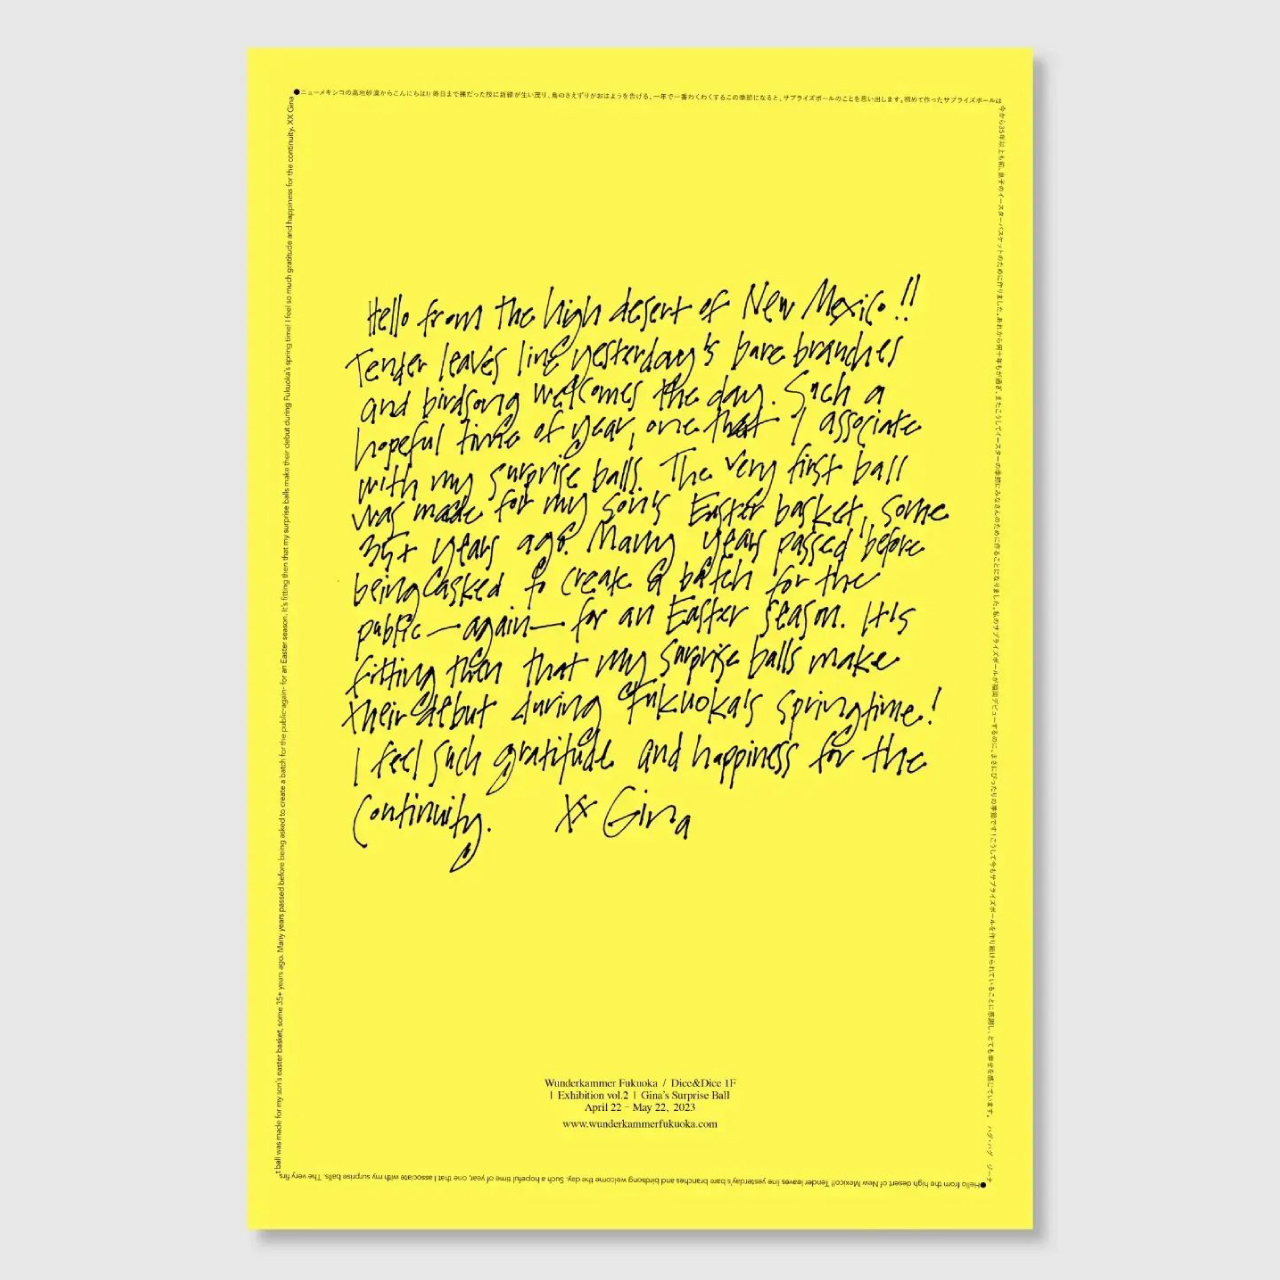 ●ニューメキシコの高地砂漠からこんにちは!! 昨日まで裸だった枝に新緑が生い茂り、鳥のさえずりがおはようを告げる、一年で一番わくわくするこの季節になると、サプライズボールのことを思い出します。初めて作ったサプライズボールは
今から35年以上も前、息子のイースターバスケットのために作りました。あれから何十年もが過ぎ、またこうしてイースターの季節にみなさんのために作ることになりました。私のサプライズボールが福岡デビューするのに、まさにぴったりの季節です！こうして今もサプライズボールを作り続けられていることに感謝し、とても幸せを感じています。 ハグ・ハグ ジーナ
Hello from the high desert of New Mexico!!
Tender leaves line yesterday's bare branches
and birdsong welcomes the day. Such a
hopeful time of year, one that I associate
with my surprise balls. The very first ball
was made for my son's Easter basket, some
35+ years ago. Many years passed before
being asked to create a batch for the
public—again—for an Easter season. It's
fitting then that my surprise balls make
their debut during Fukuoka's springtime!
I feel such gratitude and happiness for the
continuity. XX Gina
Wunderkammer Fukuoka / Dice&Dice 1F
| Exhibition vol.2 | Gina's Surprise Ball
April 22 - May 22, 2023
www.wunderkammerfukuoka.com
●Hello from the high desert of New Mexico!! Tender leaves line yesterday's bare branches and birdsong welcome the day. Such a hopeful time of year, one that I associate with my surprise balls. The very firs
t ball was made for my son's easter basket, some 35+ years ago. Many years passed before being asked to create a batch for the public-again- for an Easter season. It's fitting then that my surprise balls make their debut during Fukuoka's spring time! I feel so much gratitude and happiness for the continuity. XX Gina